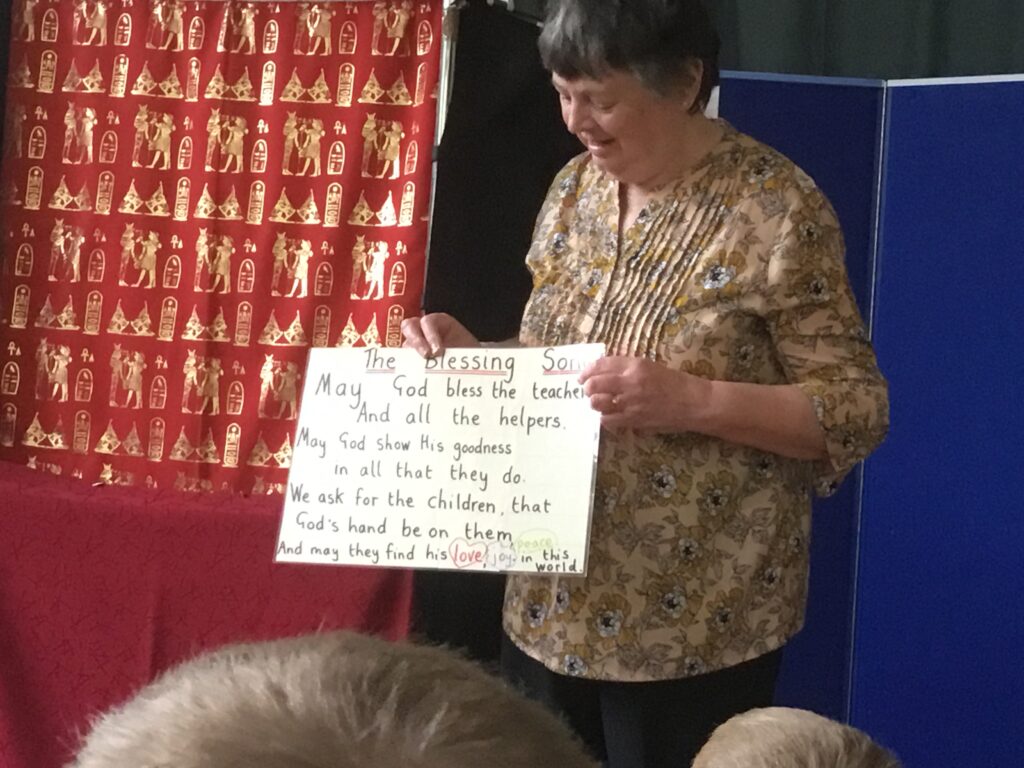 The Blessing Song
May God bless the teacher
And all the helpers.
May God show His goodness
in all that they do.
We ask for the children, that
God's hand be on them,
peace
And may they find his love, joy, in this
world.